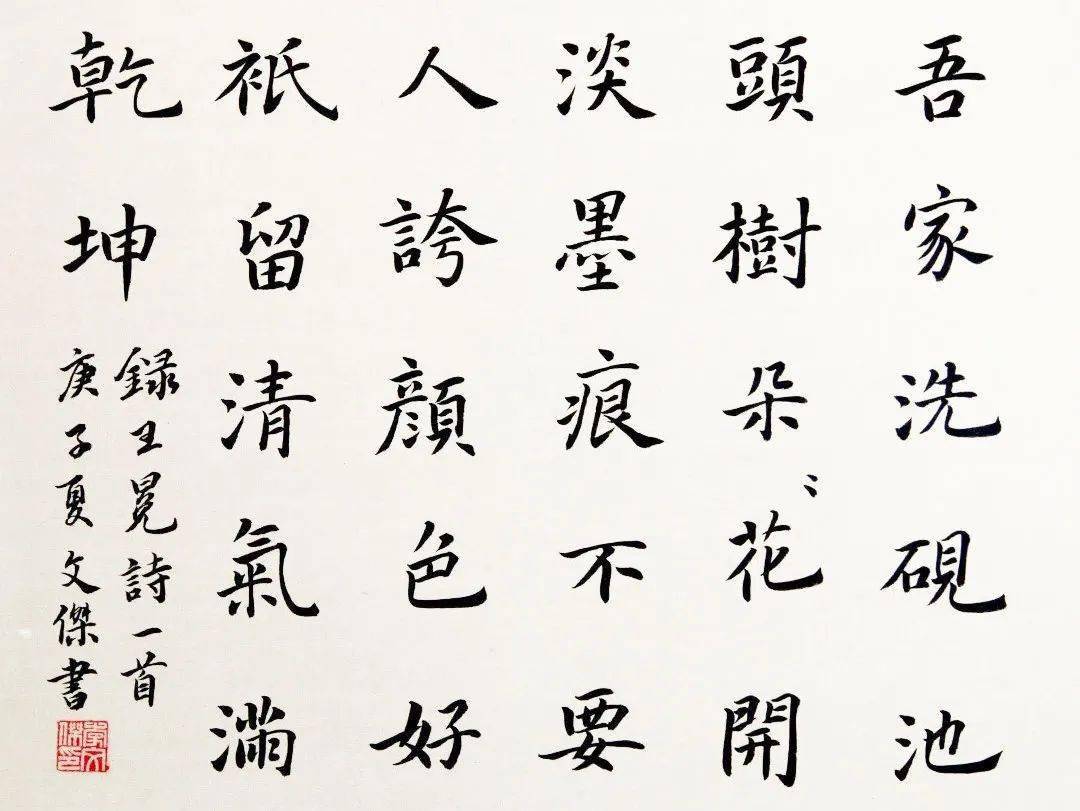 吾家洗硯池
頭樹朵〻花開
淡墨痕不要
人誇顔色好
衹留清氣滿
乾坤
録王冕詩一首
庚子夏文傑書